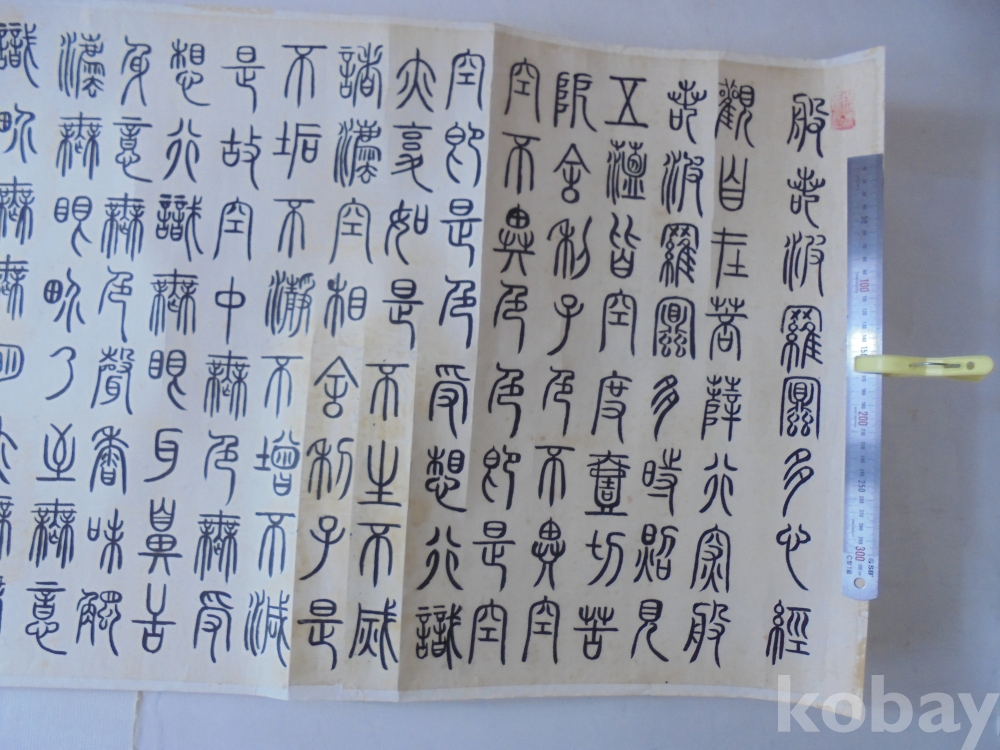 般若波羅蜜多心經
觀自在菩薩行深般
若波羅蜜多時照見
五蘊皆空度壹切苦
阨舍利子色不異空
空不異色色即是空
空即是色受想行識
亦復如是不生不滅
諸灋空相舍利子是
不垢不瀞不增不減
是故空中無色無受
想行識無眼耳鼻舌
身意無色聲香味觸
灋無眼界乃至無意
識界無無明亦無
100 200 250 300
kobay